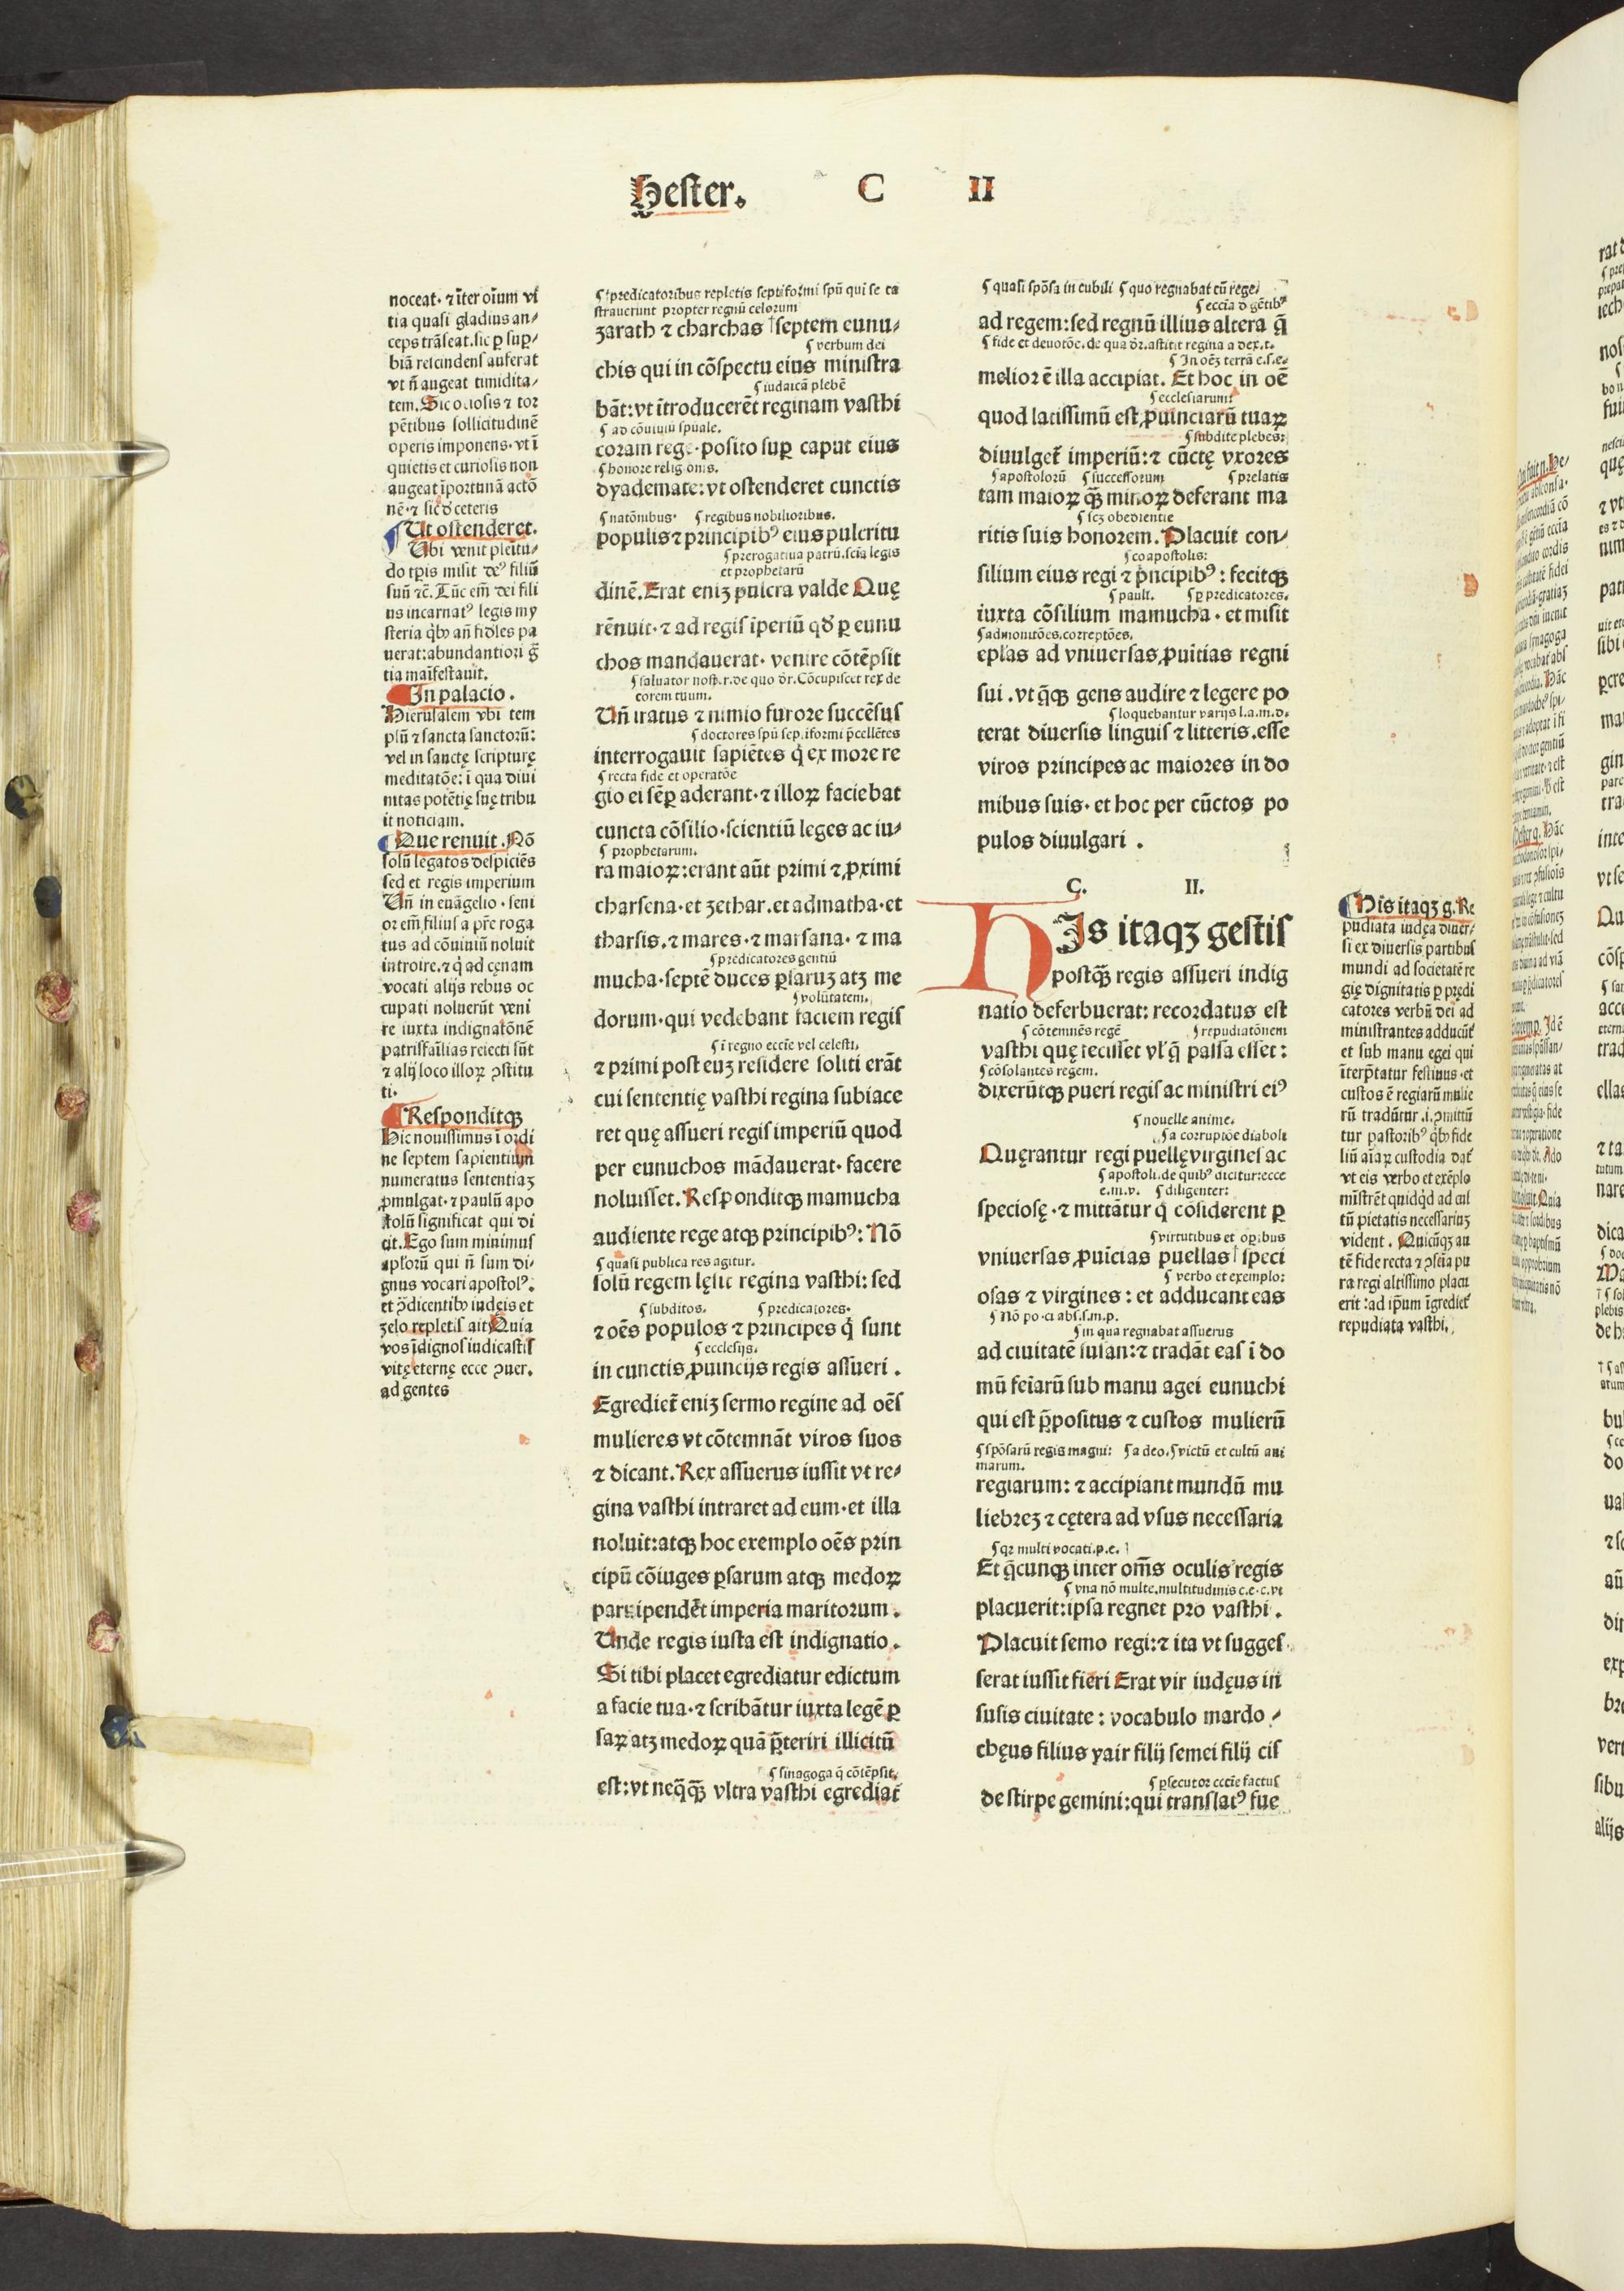 Hester. C II
noceat· ⁊ īter oīum vi
tia quasi gladius an⸗
ceps trāseat.sic ꝑ suꝑ⸗
biā rescindens auferat
vt n̄ augeat timidita⸗
tem. Sic ociosis ⁊ tor
pētibus sollicitudinē
operis imponens· vt ī
quietis et curiosis non
augeat īportunā actō
nē·⁊ sic ð ceteris
Ut ostenderet.
Ubi venit pleitu⸗
do tꝑis misit deꝰ filiū
suū ⁊c̄. Tūc em̄ dei fili
us incarnatꝰ legis my
steria q̇bꝰ an̄ fidēles pa
uerat:abundantiori ḡ
tia maīfestauit.
In palacio.
Hierusalem vbi tem
plū ⁊ sancta sanctorū:
vel in sanctę scripturę
meditatōe: ī qua diui
nitas potētię suę tribu
it noticiam.
Que renuit. Nō
solū legatos despiciēs
sed et regis imperium
Un̄ in euāgelio· seni
or em̄ filius a pr̄e roga
tus ad cōuiuiū noluit
introire.⁊ q̇ ad cęnam
vocati alijs rebus oc
cupati noluerūt veni
re iuxta indignatōnē
patrisfaīlias reiecti sūt
⁊ alij loco illoꝝ ꝯstitu
ti.
Responditqꝫ
Hic nouissimus ī ordi
ne septem sapientium
numeratus sententiaꝫ
ꝓmulgat·⁊ paulū apo
stolū significat qui di
cit. Ego sum minimus
apl̄orū qui n̄ sum di⸗
gnus vocari apostolꝰ.
et ꝯ̄dicentibꝰ iudęis et
zelo repletis ait Quia
vos īdignos iudicastis
vitę eternę ecce ꝯuer.
ad gentes
¶ predicatoribus repletis septiformi spū qui se ca
strauerunt propter regnū celorum
zarath ⁊ charchas septem eunu⸗
¶ verbum dei
chis qui in cōspectu eius ministra
¶ iudaicā plebē
bāt: vt ītroducerēt reginam vasthi
¶ ad cōuiuiū spūale.
coram rege·posito suꝑ caput eius
¶ honore religionis.
dyademate: vt ostenderet cunctis
¶ natōnibus· ¶ regibus nobilioribus.
populis ⁊ principibꝰ eius pulcritu
¶ prerogatiua patrū.scīa legis
et prophetarū
dinē. Erat eniꝫ pulcra valde Quę
rēnuit·⁊ ad regis īperiū qð ꝑ eunu
chos mandauerat· venire cōtēpsit
¶ saluator nosꝑ.r.de quo ðr. Cōcupiscet rex de
corem tuum.
Un̄ iratus ⁊ nimio furore succēsus
¶ doctores spū sep.iformi p̄cellētes
interrogauit sapiētes q̇ ex more re
¶ recta fide et operatōe
gio ei sēꝑ aderant·⁊ illoꝝ faciebat
cuncta cōsilio·scientiū leges ac iu⸗
¶ prophetarum.
ra maioꝝ:erant aūt primi ⁊ ꝓximi
charsena·et zethar.et admatha·et
tharsis.⁊ mares·⁊ marsana· ⁊ ma
¶ predicatores gentiū
mucha·septē duces ꝑsaruꝫ atꝫ me
¶ volūtatem.
dorum·qui vedebant faciem regis
¶ ī regno eccīe vel celesti.
⁊ primi post euꝫ residere soliti erāt
cui sententię vasthi regina subiace
ret quę assueri regis imperiū quod
per eunuchos mādauerat· facere
noluisset. Responditqꝫ mamucha
audiente rege atqꝫ principibꝰ: Nō
¶ quasi publica res agitur.
solū regem lęsit regina vasthi: sed
¶ subditos. ¶ predicatores·
⁊ oēs populos ⁊ principes q̇ sunt
¶ ecclesijs.
in cunctis ꝓuincijs regis assueri .
Egrediet̄ eniꝫ sermo regine ad oēs
mulieres vt cōtemnāt viros suos
⁊ dicant. Rex assuerus iussit vt re⸗
gina vasthi intraret ad eum·et illa
noluit:atqꝫ hoc exemplo oēs prin
cipū cōiuges ꝑsarum atqꝫ medoꝝ
paruipendēt imperia maritorum .
Unde regis iusta est indignatio .
Si tibi placet egrediatur edictum
a facie tua·⁊ scribātur iuxta legē ꝑ
saꝝ atꝫ medoꝝ quā p̄teriri illicitū
¶ sinagoga q̄ cōtēpsit.
est: vt neq̄qꝫ̄ vltra vasthi egrediat̄
¶ quasi spōsa in cubili ¶ quo regnabat cū rege.
¶ eccīa ð gētibꝰ
ad regem:sed regnū illius altera q̄
¶ fide et deuotōe. de qua ðr. astitit regina a dex.t.
¶ In oēꝫ terrā e.s.e.
melior ē illa accipiat. Et hoc in oē
¶ ecclesiarum:
quod latissimū est ꝓuinciarū tuaꝝ
¶ subdite plebes:
diuulget̄ imperiū:⁊ cūctę vxores
¶ apostolorū ¶ successorum ¶ prelatis
tam maioꝝ qꝫ̄ minoꝝ deferant ma
¶ scꝫ obedientie
ritis suis honorem. Placuit con⸗
¶ coapostolis:
silium eius regi ⁊ p̄ncipibꝰ : fecitqꝫ
¶ pault. ¶ ꝑ predicatores.
iuxta cōsilium mamucha · et misit
¶ admonitōes.correptōes.
epl̄as ad vniuersas ꝓuītias regni
sui . vt q̄qꝫ gens audire ⁊ legere po
¶ loquebantur varijs l.a.m.d.
terat diuersis linguis ⁊ litteris.esse
viros principes ac maiores in do
mibus suis· et hoc per cūctos po
pulos diuulgari .
C. II.
HIs itaqꝫ gestis
postqꝫ̄ regis assueri indig
natio deferbuerat: recordatus est
¶ cōtemnēs regē ¶ repudiatōnem
vasthi quę fecisset vl̄ q̄ passa esset :
¶ cōsolantes regem.
dixerūtqꝫ pueri regis ac ministri eiꝰ
¶ nouelle anime.
¶ a corruptōe diaboli
Quęrantur regi puellę virgines ac
¶ apostoli.de quibꝰ dicitur:ecce
e.m.v. ¶ diligenter:
speciosę·⁊ mittātur q̇ cōsiderent ꝑ
¶ virtutibus et oꝑibus
vniuersas ꝓuīcias puellas speci
¶ verbo et exemplo:
osas ⁊ virgines : et adducant eas
¶ Nō po.ci abs.s.m.p.
¶ in qua regnabat assuerus
ad ciuitatē susan:⁊ tradāt eas ī do
mū feīarū sub manu agei eunuchi
qui est p̄positus ⁊ custos mulierū
¶ spōsarū regis magni: ¶ a deo. ¶ victū et cultū ani
marum.
regiarum: ⁊ accipiant mundū mu
liebreꝫ ⁊ cętera ad vsus necessaria
¶ qꝛ multi vocati.p.e.
Et q̄cunqꝫ inter om̄s oculis regis
¶ vna nō multe.multitudinis c.e.c.vt
placuerit:ipsa regnet pro vasthi .
Placuit semo regi:⁊ ita vt sugges
serat iussit fieri Erat vir iudęus in
susis ciuitate : vocabulo mardo ⸗
chęus filius yair filij semei filij cis
¶ ꝑsecutor eccīe factus
de stirpe gemini:qui translatꝰ fue
His itaqꝫ g. Re
pudiata iudęa diuer⸗
si ex diuersis partibus
mundi ad societatē re
gię dignitatis ꝑ prędi
catores verbū dei ad
ministrantes adducūt̄
et sub manu egei qui
īterp̄tatur festiuus·et
custos ē regiarū mulie
rū tradūtur .i. ꝯmittū
tur pastoribꝰ q̇bꝰ fide
liū aīaꝝ custodia dat̄
vt eis verbo et exēplo
mīstrēt quidq̇d ad cul
tū pietatis necessariuꝫ
vident . Quicūqꝫ au
tē fide recta ⁊ ꝯsciā pu
ra regi altissimo placu
erit :ad ip̄um īgrediet̄
repudiata vasthi.